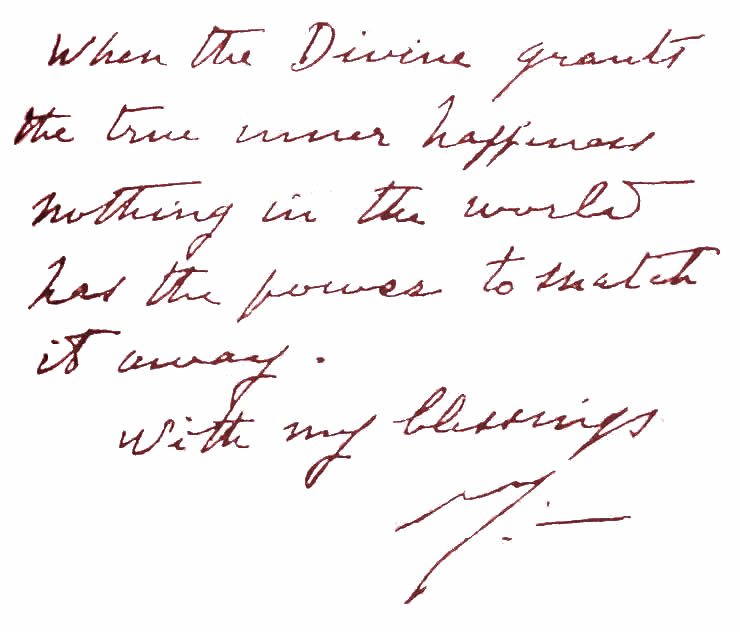 When the Divine grants
the true inner happiness
nothing in the world
has the power to snatch
it away.
With my blessings